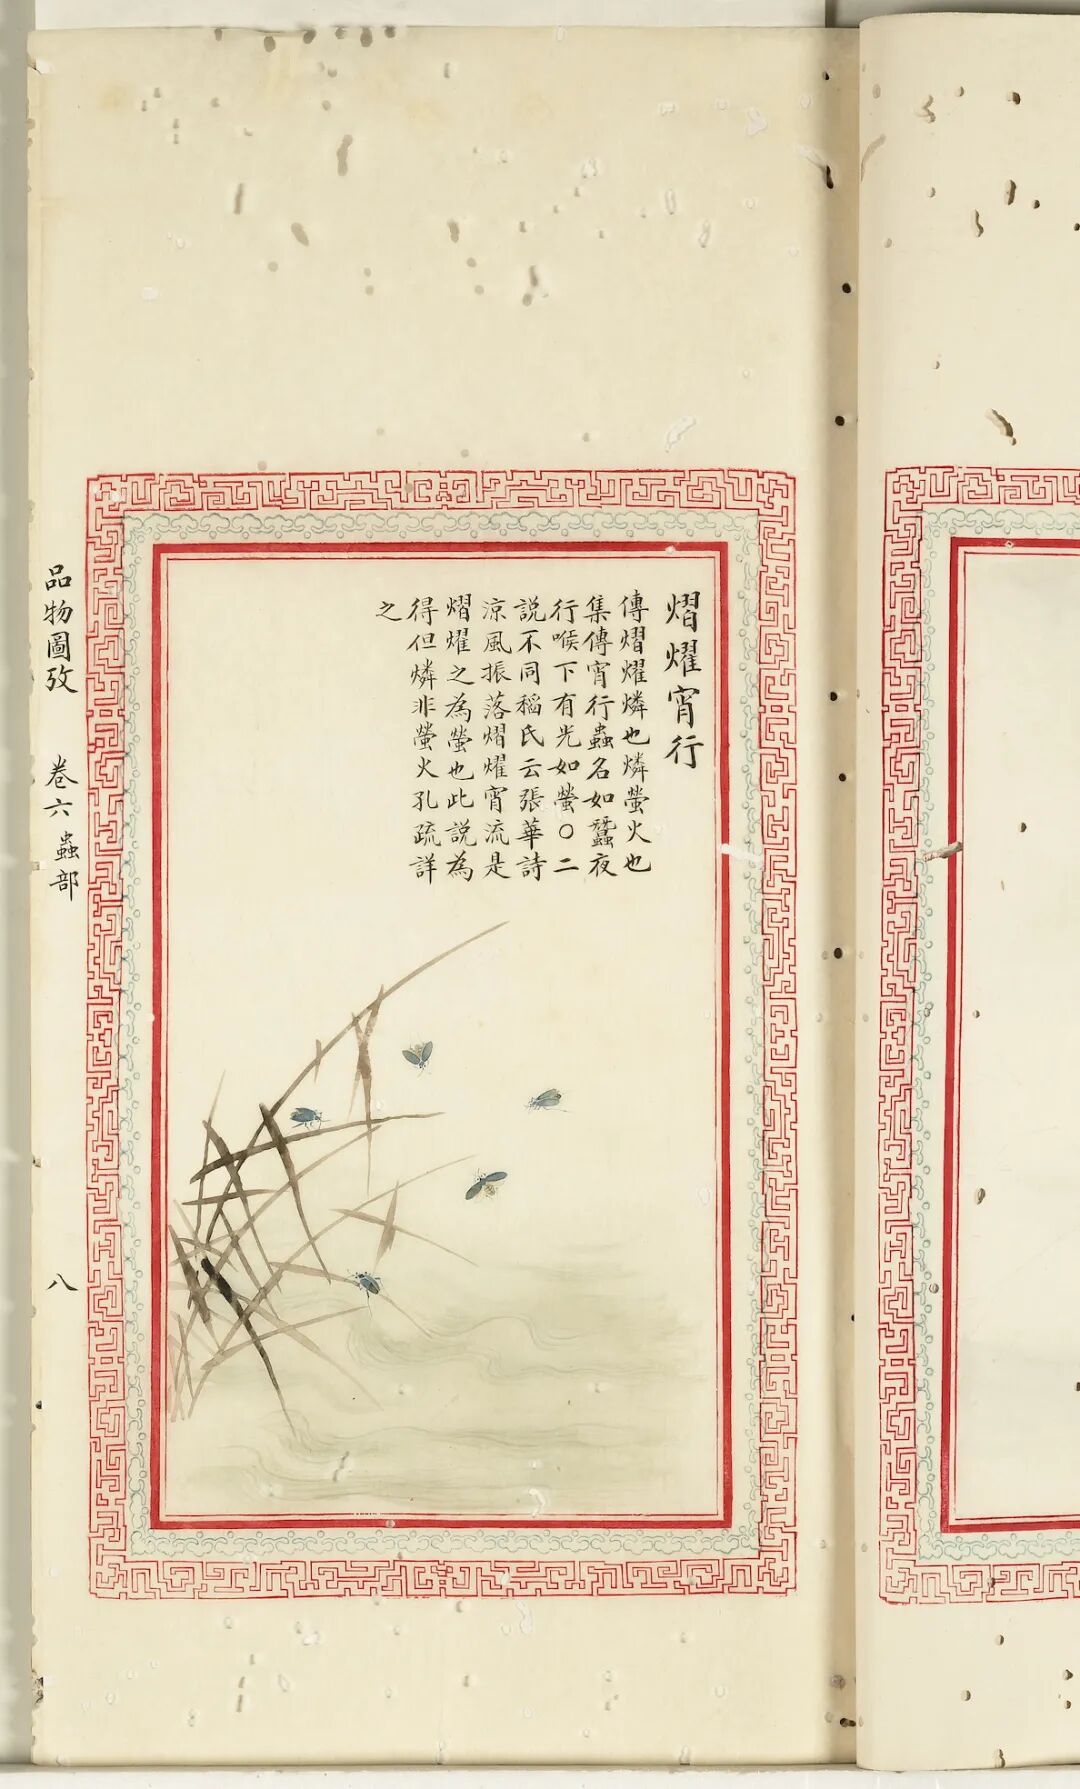 熠燿宵行
傳熠燿燐也燐螢火也
集傳宵行蟲名如蠶夜
行喉下有光如螢〇二
説不同稲氏云張華詩
涼風振落熠燿宵流是
熠燿之為螢也此説為
得但燐非螢火孔疏詳
之
品物圖攷 卷六 蟲部 八